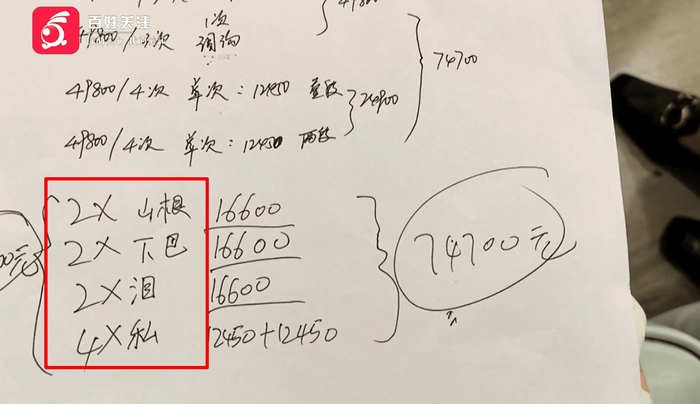 百姓关注
1次
49800/3次
49800/4次 单次:12450 壹段
24900
74700
49800/4次 单次:12450 两段
2X 山根 16600
2X 下巴 16600
2X 泪 16600
4X 私 12450+12450
74700元
元